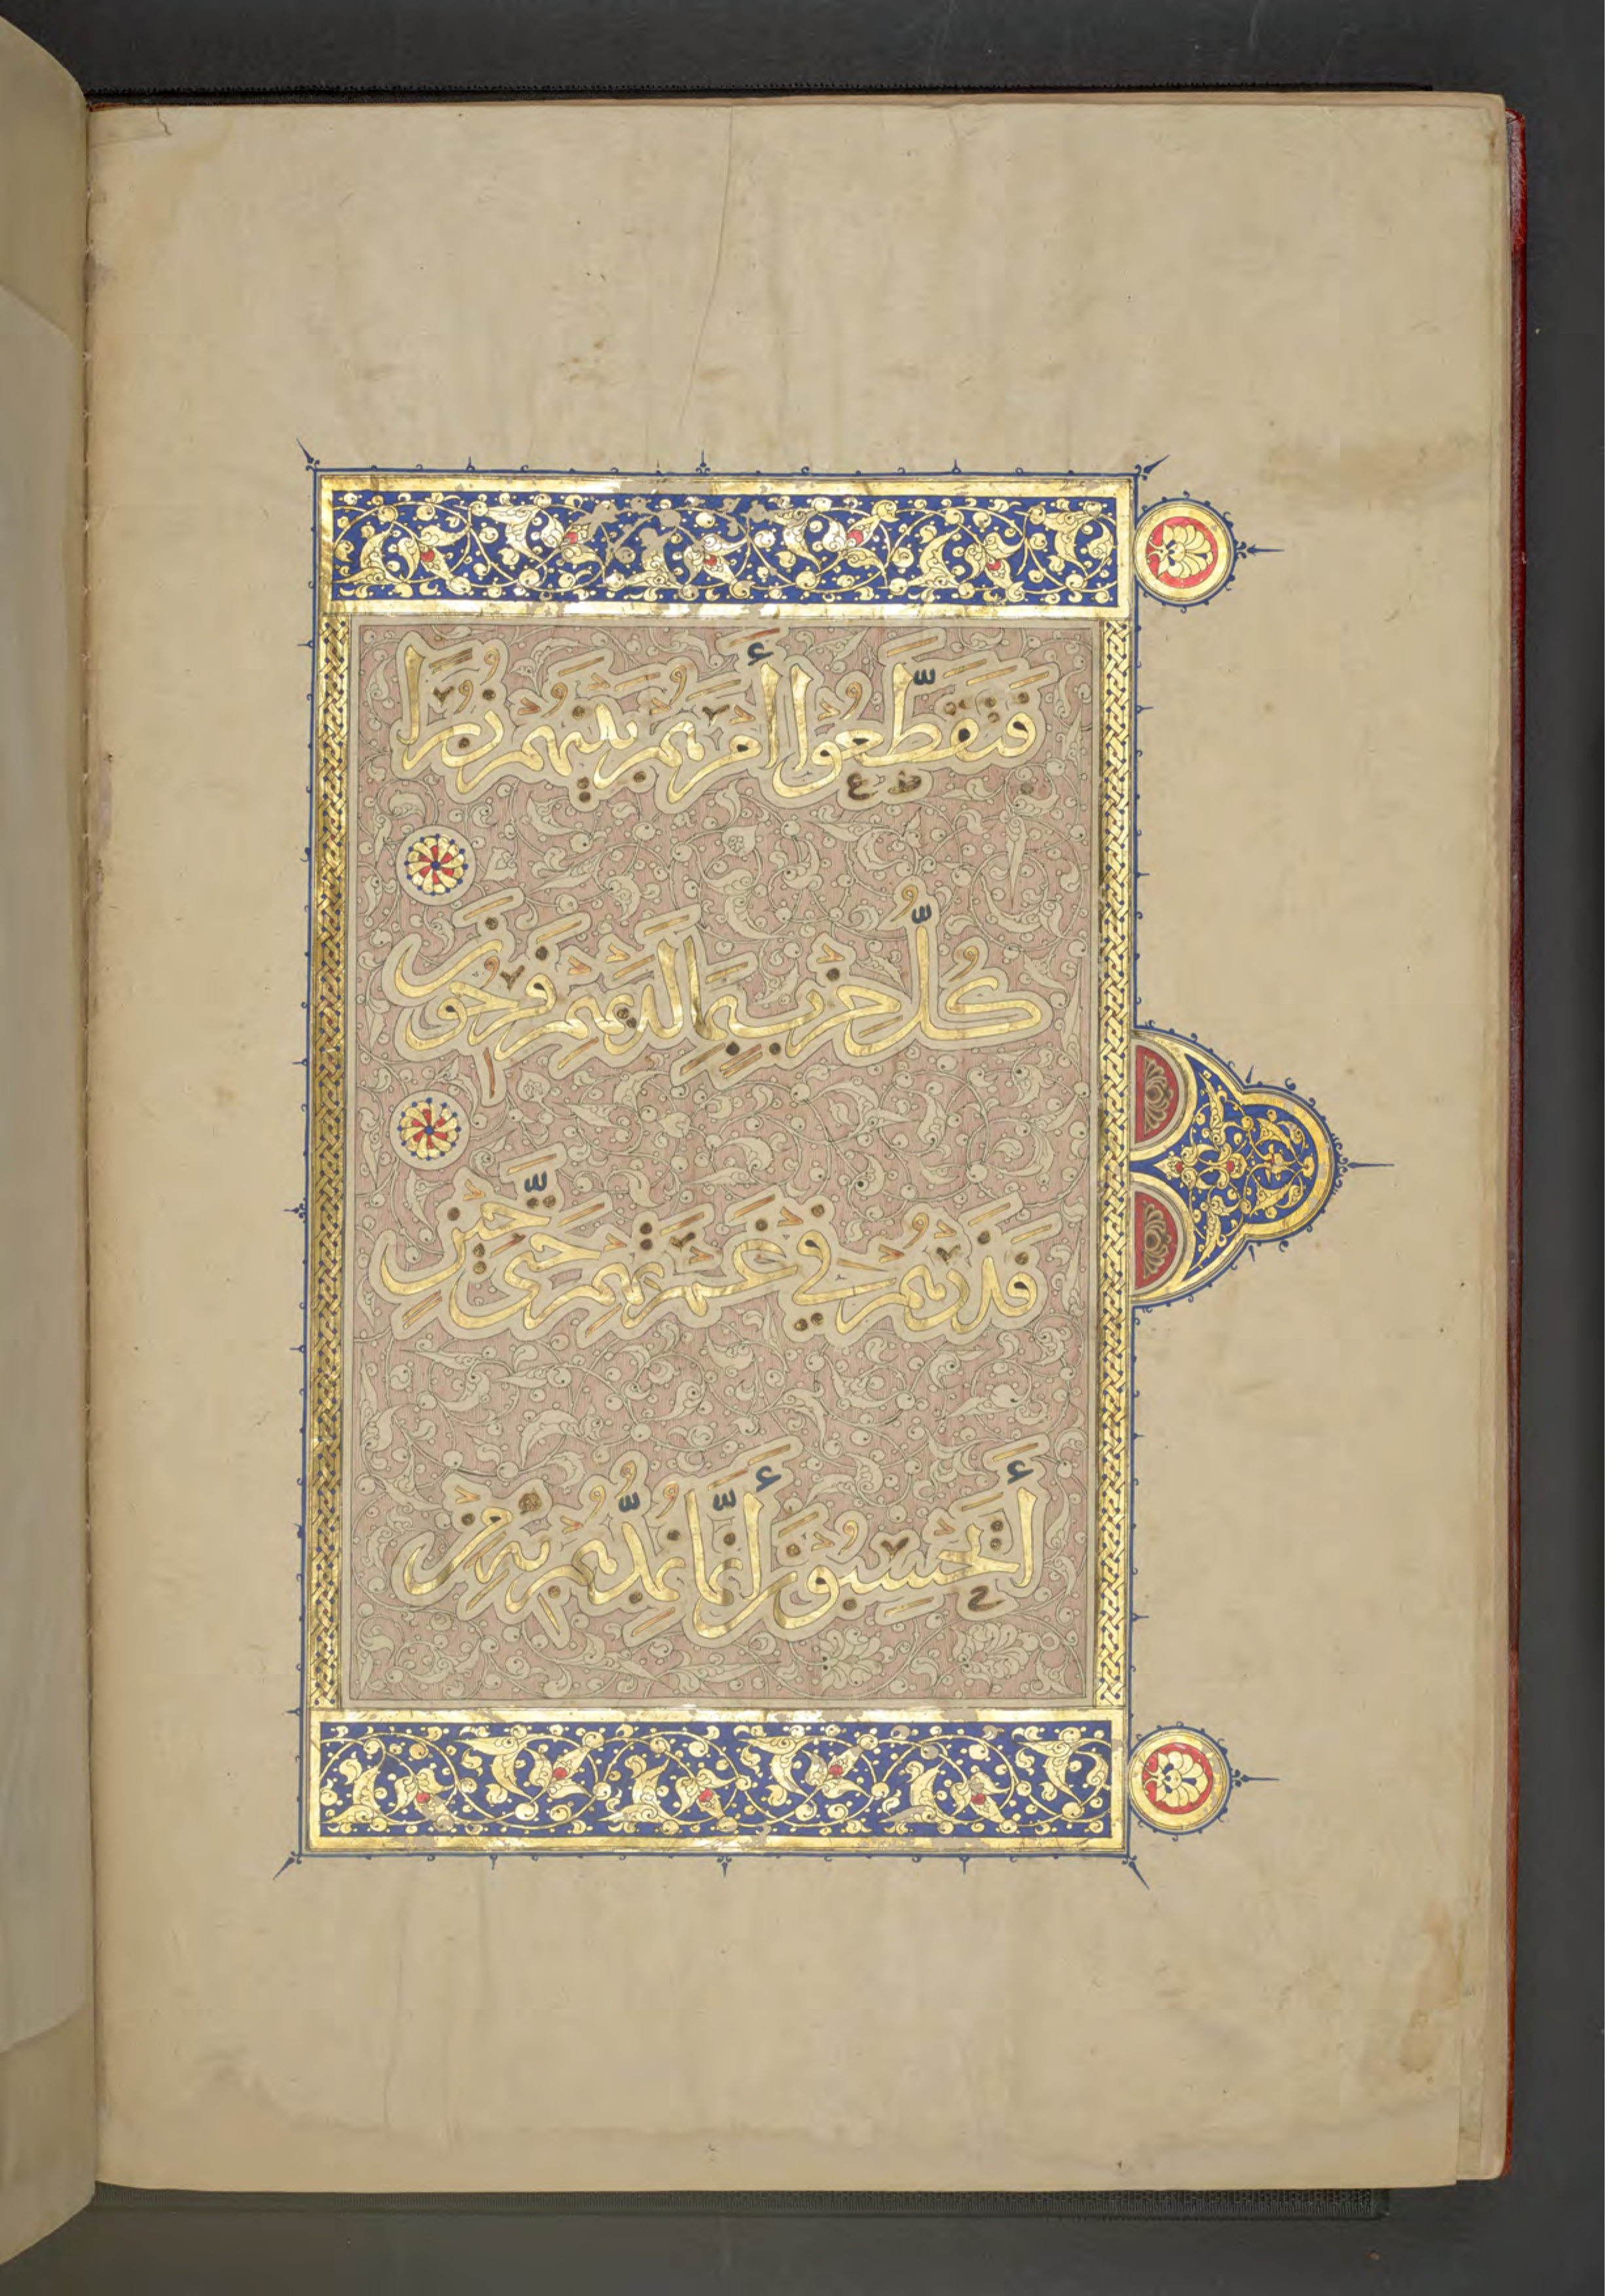 فَتَقَطَّعُوا أَمْرَهُمْ بَيْنَهُمْ زُبُرًا
كُلُّ حِزْبٍ بِمَا لَدَيْهِمْ فَرِحُونَ
فَذَرْهُمْ فِي غَمْرَتِهِمْ حَتَّى حِينٍ
أَيَحْسَبُونَ أَنَّمَا نُمِدُّهُمْ بِهِ مِنْ